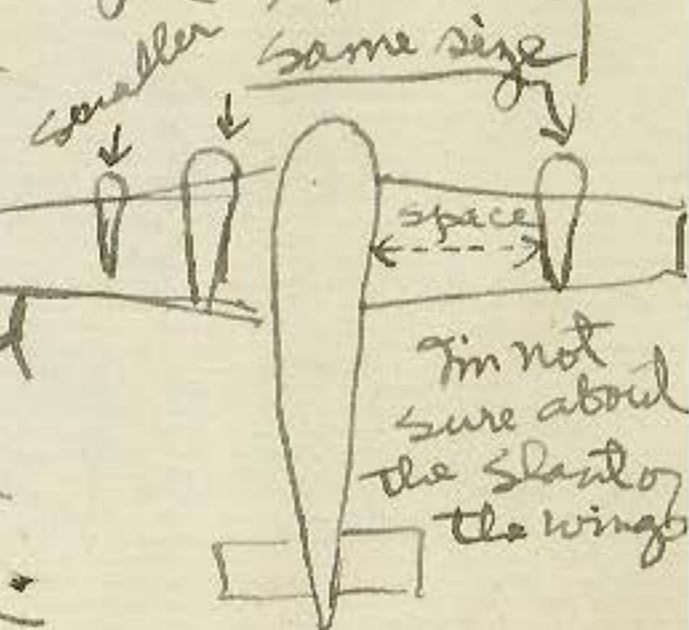 smaller
same size
space
I'm not
sure about
the slant of
the wings